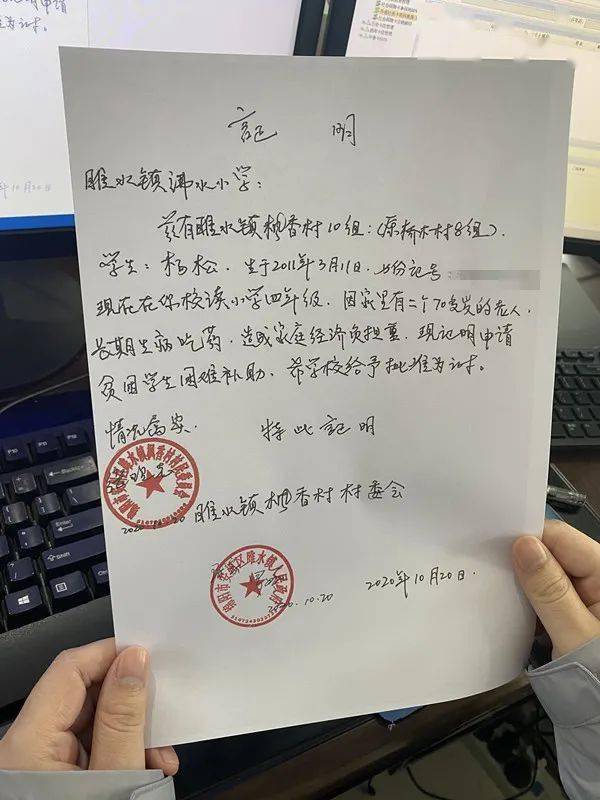 证 明
雎水镇沸水小学：
兹有雎水镇枫香村10组：（原桥木村8组）．
学生：杨松．生于2011年3月11日．身份证号：
现在在你校读小学四年级．因家里有二个70多岁的老人，
长期生病吃药．造成家庭经济负担重．现证明申请
贫困学生困难补助．希学校给予批准为谢。
情况属实． 特此证明
2020.10.20 雎水镇枫香村村委会
绵阳市安州区雎水镇人民政府
2020.10.20
2020年10月20日．